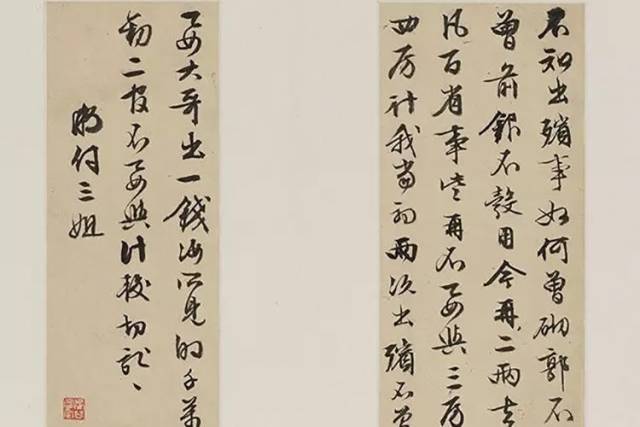 不知出殯事如何曾砌郭不
曾前銀不彀用今再二兩去
凡百省事些再不要與三房
四房計我當初兩次出殯不曾
要大哥出一錢汝所見的千萬
勸二官不要與計較切記〻
明付三姐